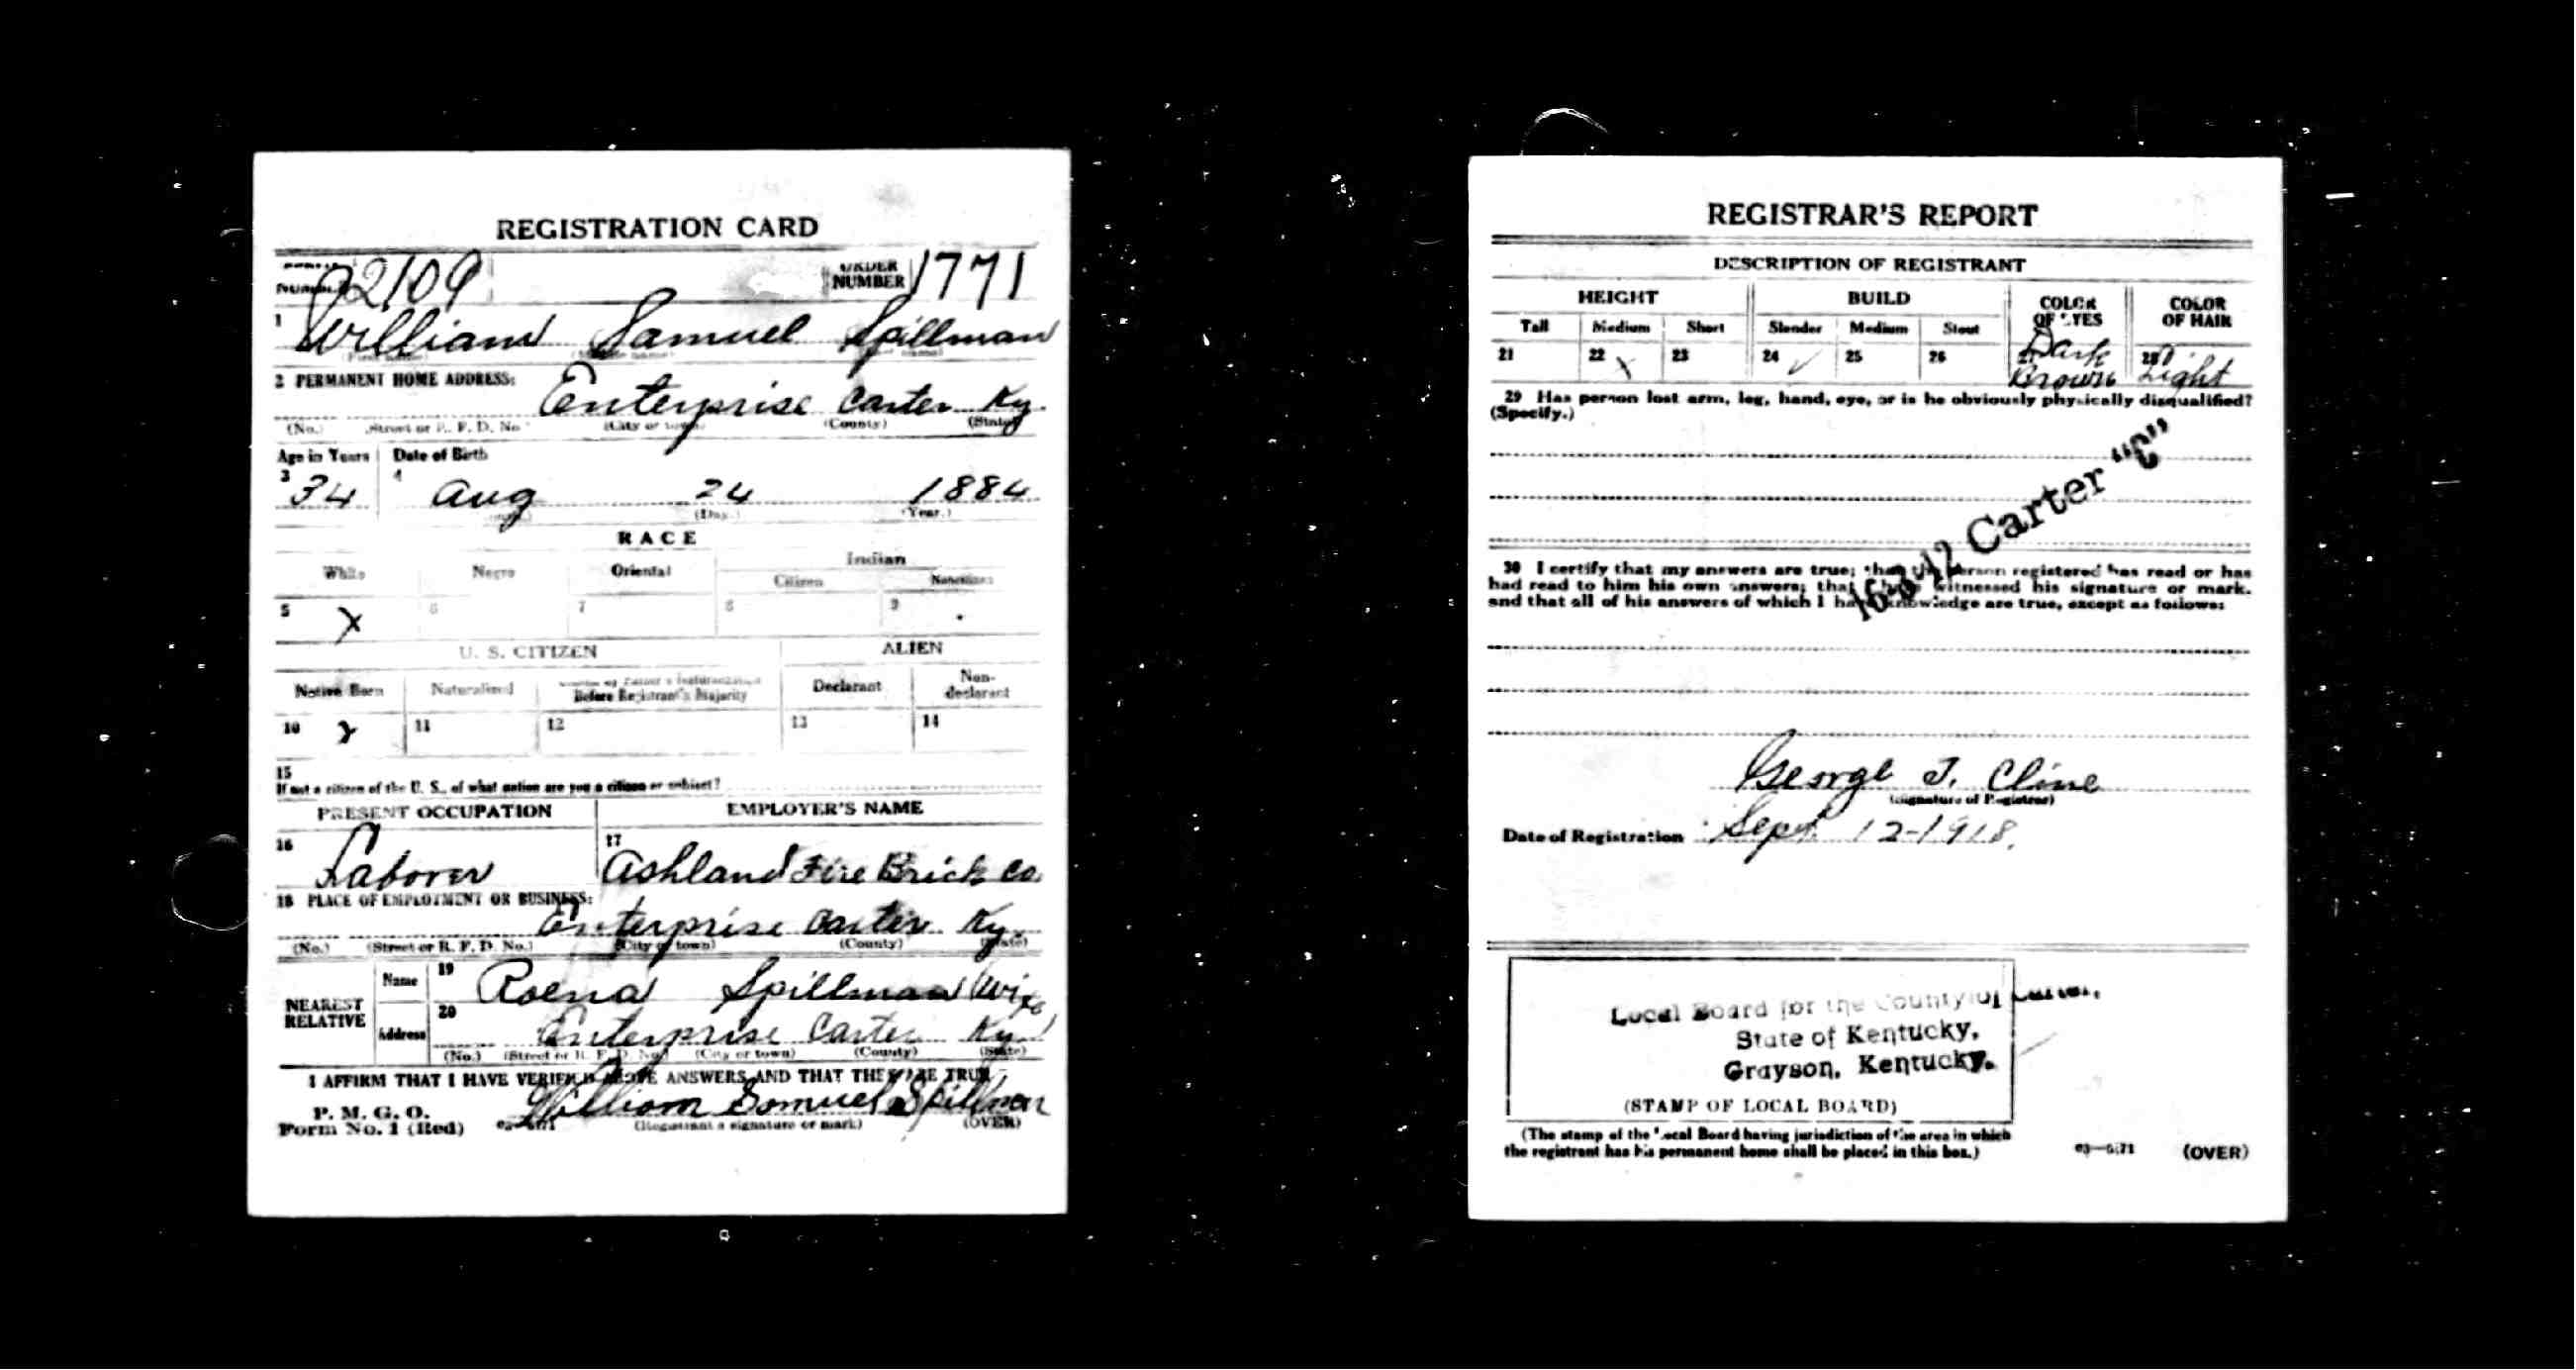 REGISTRATION CARD
NUMBER 2109 ORDER NUMBER 1771
1 William Samuel Spillman
2 PERMANENT HOME ADDRESS:
Enterprise Carter Ky.
(No.) (Street or R. F. D. No.) (City or town) (County) (State)
Age in Years Date of Birth
3 34 4 Aug 24 1884
(Day.) (Year.)
RACE
White Negro Oriental Indian
Citizen Noncitizen
5 X 6 7 8 9
U. S. CITIZEN ALIEN
Native Born Naturalized Citizen by Father's Naturalization Before Registrant's Majority Declarant Non-declarant
10 x 11 12 13 14
15
If not a citizen of the U. S., of what nation are you a citizen or subject?
PRESENT OCCUPATION EMPLOYER'S NAME
16 Laborer 17 Ashland Fire Brick Co
18 PLACE OF EMPLOYMENT OR BUSINESS:
Enterprise Carter Ky.
(No.) (Street or R. F. D. No.) (City or town) (County) (State)
NEAREST RELATIVE
Name 19 Roena Spillman (wife)
Address 20 Enterprise Carter Ky
(No.) (Street or R. F. D. No.) (City or town) (County) (State)
I AFFIRM THAT I HAVE VERIFIED ABOVE ANSWERS AND THAT THEY ARE TRUE
P. M. G. O.
Form No. 1 (Red) William Samuel Spillman
(Registrant's signature or mark) (OVER)
REGISTRAR'S REPORT
DESCRIPTION OF REGISTRANT
HEIGHT BUILD COLOR OF EYES COLOR OF HAIR
Tall Medium Short Slender Medium Stout
21 22 X 23 24 ✓ 25 26 27 Dark Brown 28 Light
29 Has person lost arm, leg, hand, eye, or is he obviously physically disqualified?
(Specify.)
16-3-12 Carter "C"
30 I certify that my answers are true; that the person registered has read or has
had read to him his own answers; that I have witnessed his signature or mark,
and that all of his answers of which I have knowledge are true, except as follows:
George T. Cline
(Signature of Registrar)
Date of Registration Sept. 12-1918.
Local Board for the County of Carter,
State of Kentucky,
Grayson, Kentucky.
(STAMP OF LOCAL BOARD)
(The stamp of the Local Board having jurisdiction of the area in which
the registrant has his permanent home shall be placed in this box.)
03—6171 (OVER)